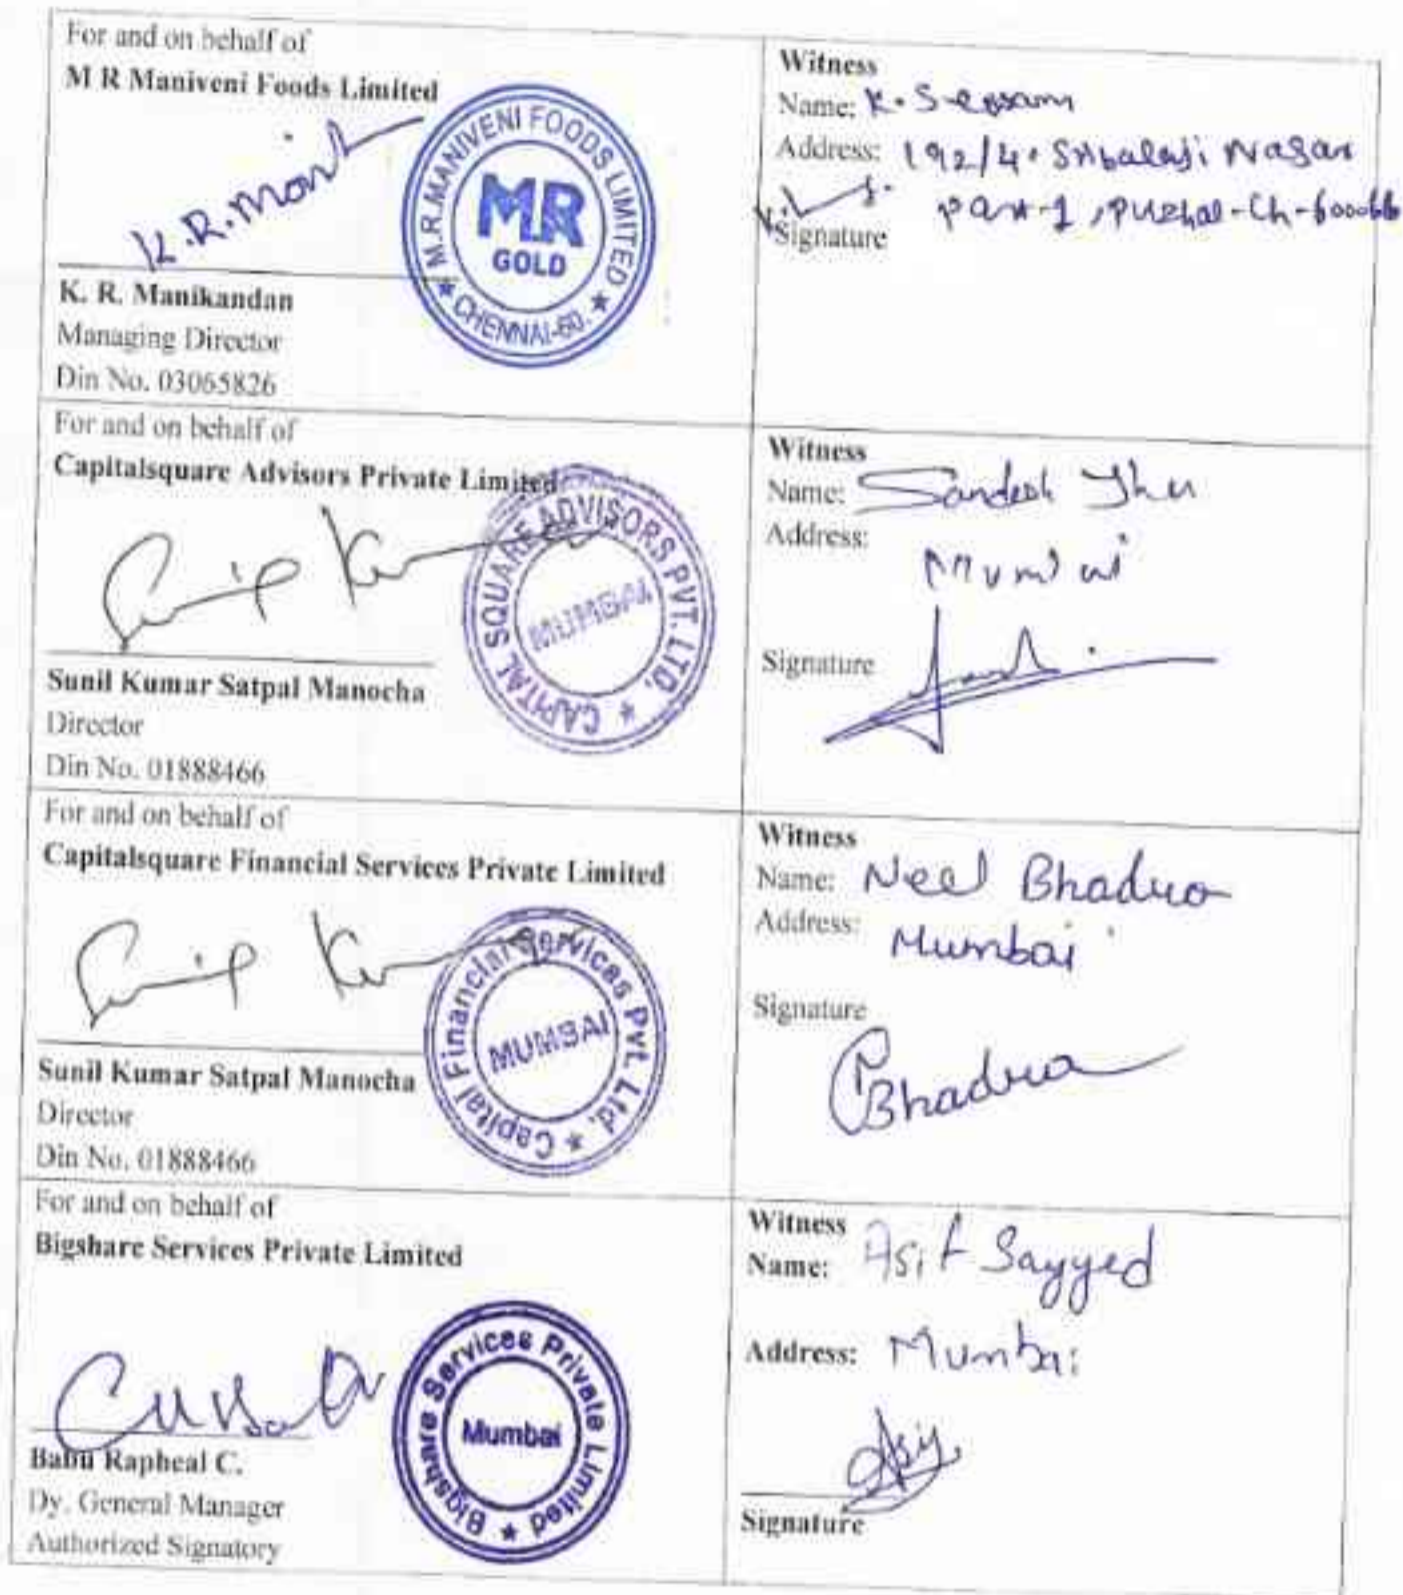 For and on behalf of
M R Maniveni Foods Limited
K.R. Mani
M.R.MANIVENI FOODS LIMITED
★ CHENNAI-60. ★
MR
GOLD
K. R. Manikandan
Managing Director
Din No. 03065826
Witness
Name: K.
Address: 192/4, Nagar
Part-1, Puzhal-Ch-600066
Signature
For and on behalf of
Capitalsquare Advisors Private Limited
CAPITAL SQUARE ADVISORS PVT. LTD. ★
MUMBAI
Sunil Kumar Satpal Manocha
Director
Din No. 01888466
Witness
Name: Sandesh
Address:
Mumbai
Signature
For and on behalf of
Capitalsquare Financial Services Private Limited
Capital Financial Services Pvt. Ltd. ★
MUMBAI
Sunil Kumar Satpal Manocha
Director
Din No. 01888466
Witness
Name: Neel Bhadra
Address:
Mumbai
Signature
Bhadra
For and on behalf of
Bigshare Services Private Limited
Bigshare Services Private Limited ★
Mumbai
Babu Rapheal C.
Dy. General Manager
Authorized Signatory
Witness
Name: Asif Sayyed
Address: Mumbai
Asif
Signature